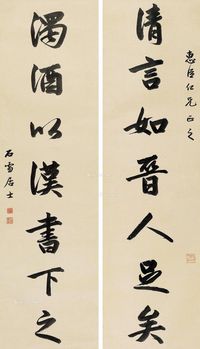 惠臣仁兄正之
清言如晋人足矣
濁酒以漢書下之
石雪居士